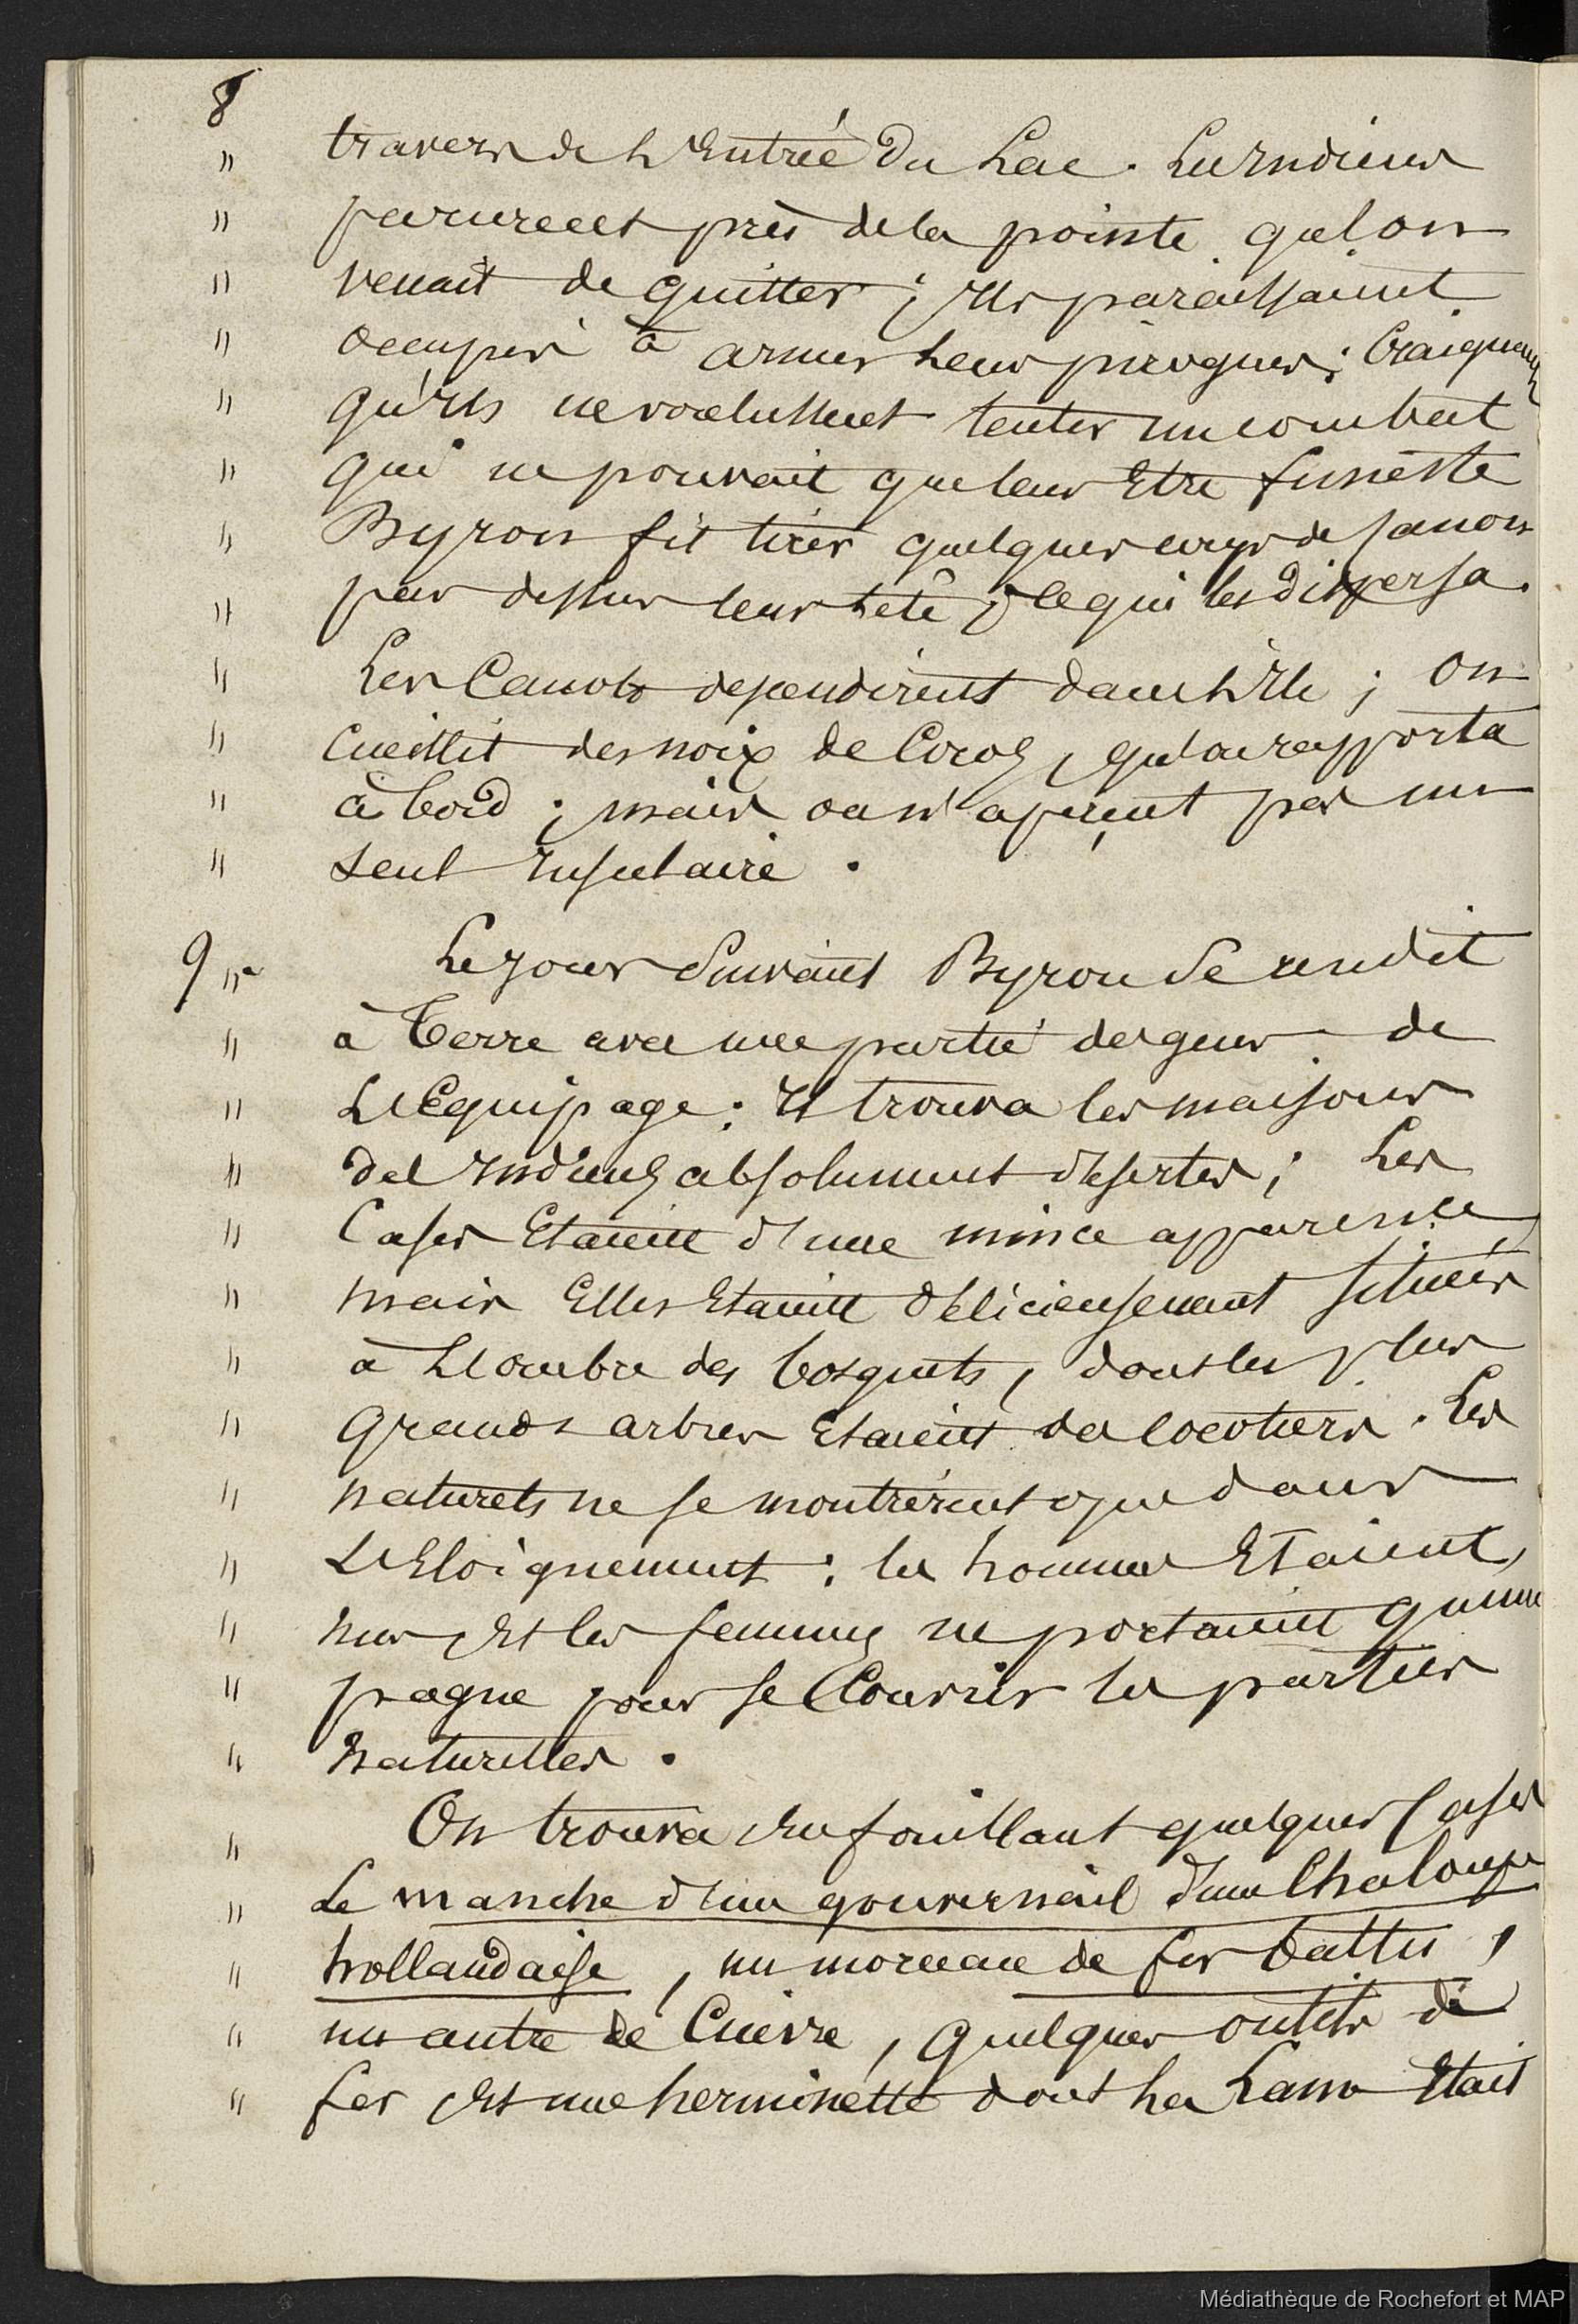 8
" travers de L'Entrée du Lac. Les Indiens
" parurent près de la pointe qu'on
" venait de quitter ; Ils paraissaient
" occupés à armer Leurs pirogues ; Craignant
" qu'Ils ne voulussent tenter un combat
" qui ne pouvait que leur Etre funeste
" Byron fit tirer quelques coups de Canon
" par dessus leur tête ; ce qui les dispersa.
" Les Canots descendirent dans L'Ile ; On
" Cueillit des noix de Cocos, qu'on rapporta
" à bord ; mais on n'aperçut pas un
" seul Insulaire.
9 " Le Jour Suivant Byron Se rendit
" à Terre avec une partie des gens de
" L'Equipage : Il trouva les maisons
" des Indiens absolument désertes ; Les
" Cases Etaient d'une mince apparence,
" mais Elles Etaient délicieusement situées
" à L'ombre des bosquets, dont les plus
" grands arbres Etaient des cocotiers. Les
" naturels ne se montrèrent que dans
" L'Eloignement : les hommes Etaient,
" nus Et les femmes ne portaient qu'une
" pagne pour se Couvrir les parties
" naturelles.
" On trouva En fouillant quelques Cases
" Le manche d'un gouvernail d'une Chaloupe
" hollandaise, un morceau de fer battu,
" un autre de Cuivre, Quelques outils de
" fer Et une herminette dont La Lame Etait
Médiathèque de Rochefort et MAP